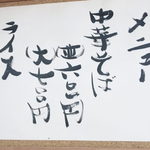 メニュー
中華そば
並六〇〇円
大七〇〇円
ライス